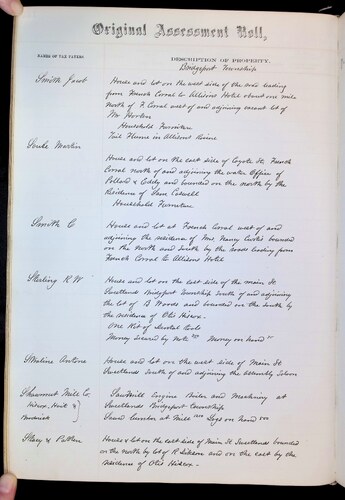 Original Assessment Roll,
NAMES OF TAX PAYERS
DESCRIPTION OF PROPERTY.
Bridgeport Township
Smith Jacob House and lot on the west side of the road leading
from French Corral to Allisons Hotel about one mile
North of F. Corral west of and adjoining vacant lot of
Wm Horton
Household Furniture
Tail Flume in Allisons Ravine
Soule Martin
House and lot on the east side of Coyote St French
Corral north of and adjoining the water Office of
Pollard & Eddy and bounded on the north by the
Residence of Sam Caldwell
Household Furniture
Smith C House and lot at French Corral west of and
adjoining the residence of Mrs Nancy Curtis bounded
on the North and South by the road leading from
French Corral to Allisons Hotel
Sterling R W House and lot on the east side of the main St
Sweetland Bridgeport Township South of and adjoining
the lot of B Woods and bounded on the South by
the residence of Otis Hickox.
One Kit of Dental Tools
Money secured by Mtg Money on hand
Sibaline Antone House and lot on the west side of Main St
Sweetlands South of and adjoining the Assembly Saloon
Shawmut Mill Co. Sawmill Engine Boiler and Machinery at
Hickox, Hoit & Sweetlands Bridgeport Township
Broderick Sawed lumber at Mill Logs on hand
Stacy & Patten House & lot on the east side of Main St Sweetland bounded
on the north by lot of R. and on the east by the
residence of Otis Hickox.